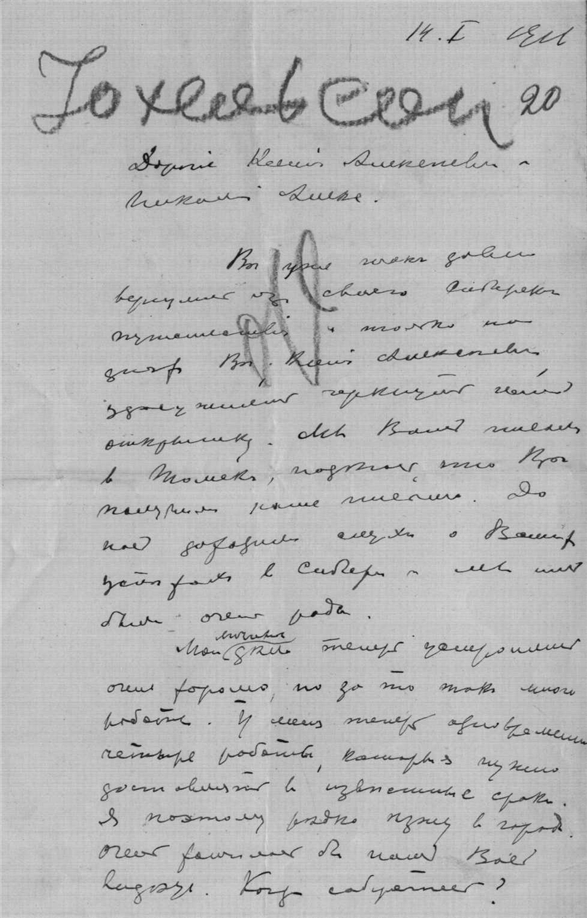 14. I 1911
Иохельсон 20
Дорогие Ксения Алексеевна и
Николай Алекс.
Вы уже так давно
вернулись из своего Сибирск
путешествия и только на
Вы, Ксения Алексеевна
открытку. Мы Вам писали
в Томск, подожит что Вы
получили наше письмо. До
нас доходили слухи о Ваших
успехах в Сибири и мы им
были очень рады.
личные
Мои дела теперь устроились
очень хорошо, но за то так много
работы. У меня теперь одновременно
четыре работы, которыя нужно
доставлять в известные сроки.
Я поэтому редко езжу в город.
Очень хотелось бы нам Вас
видеть. Когда соберетесь?